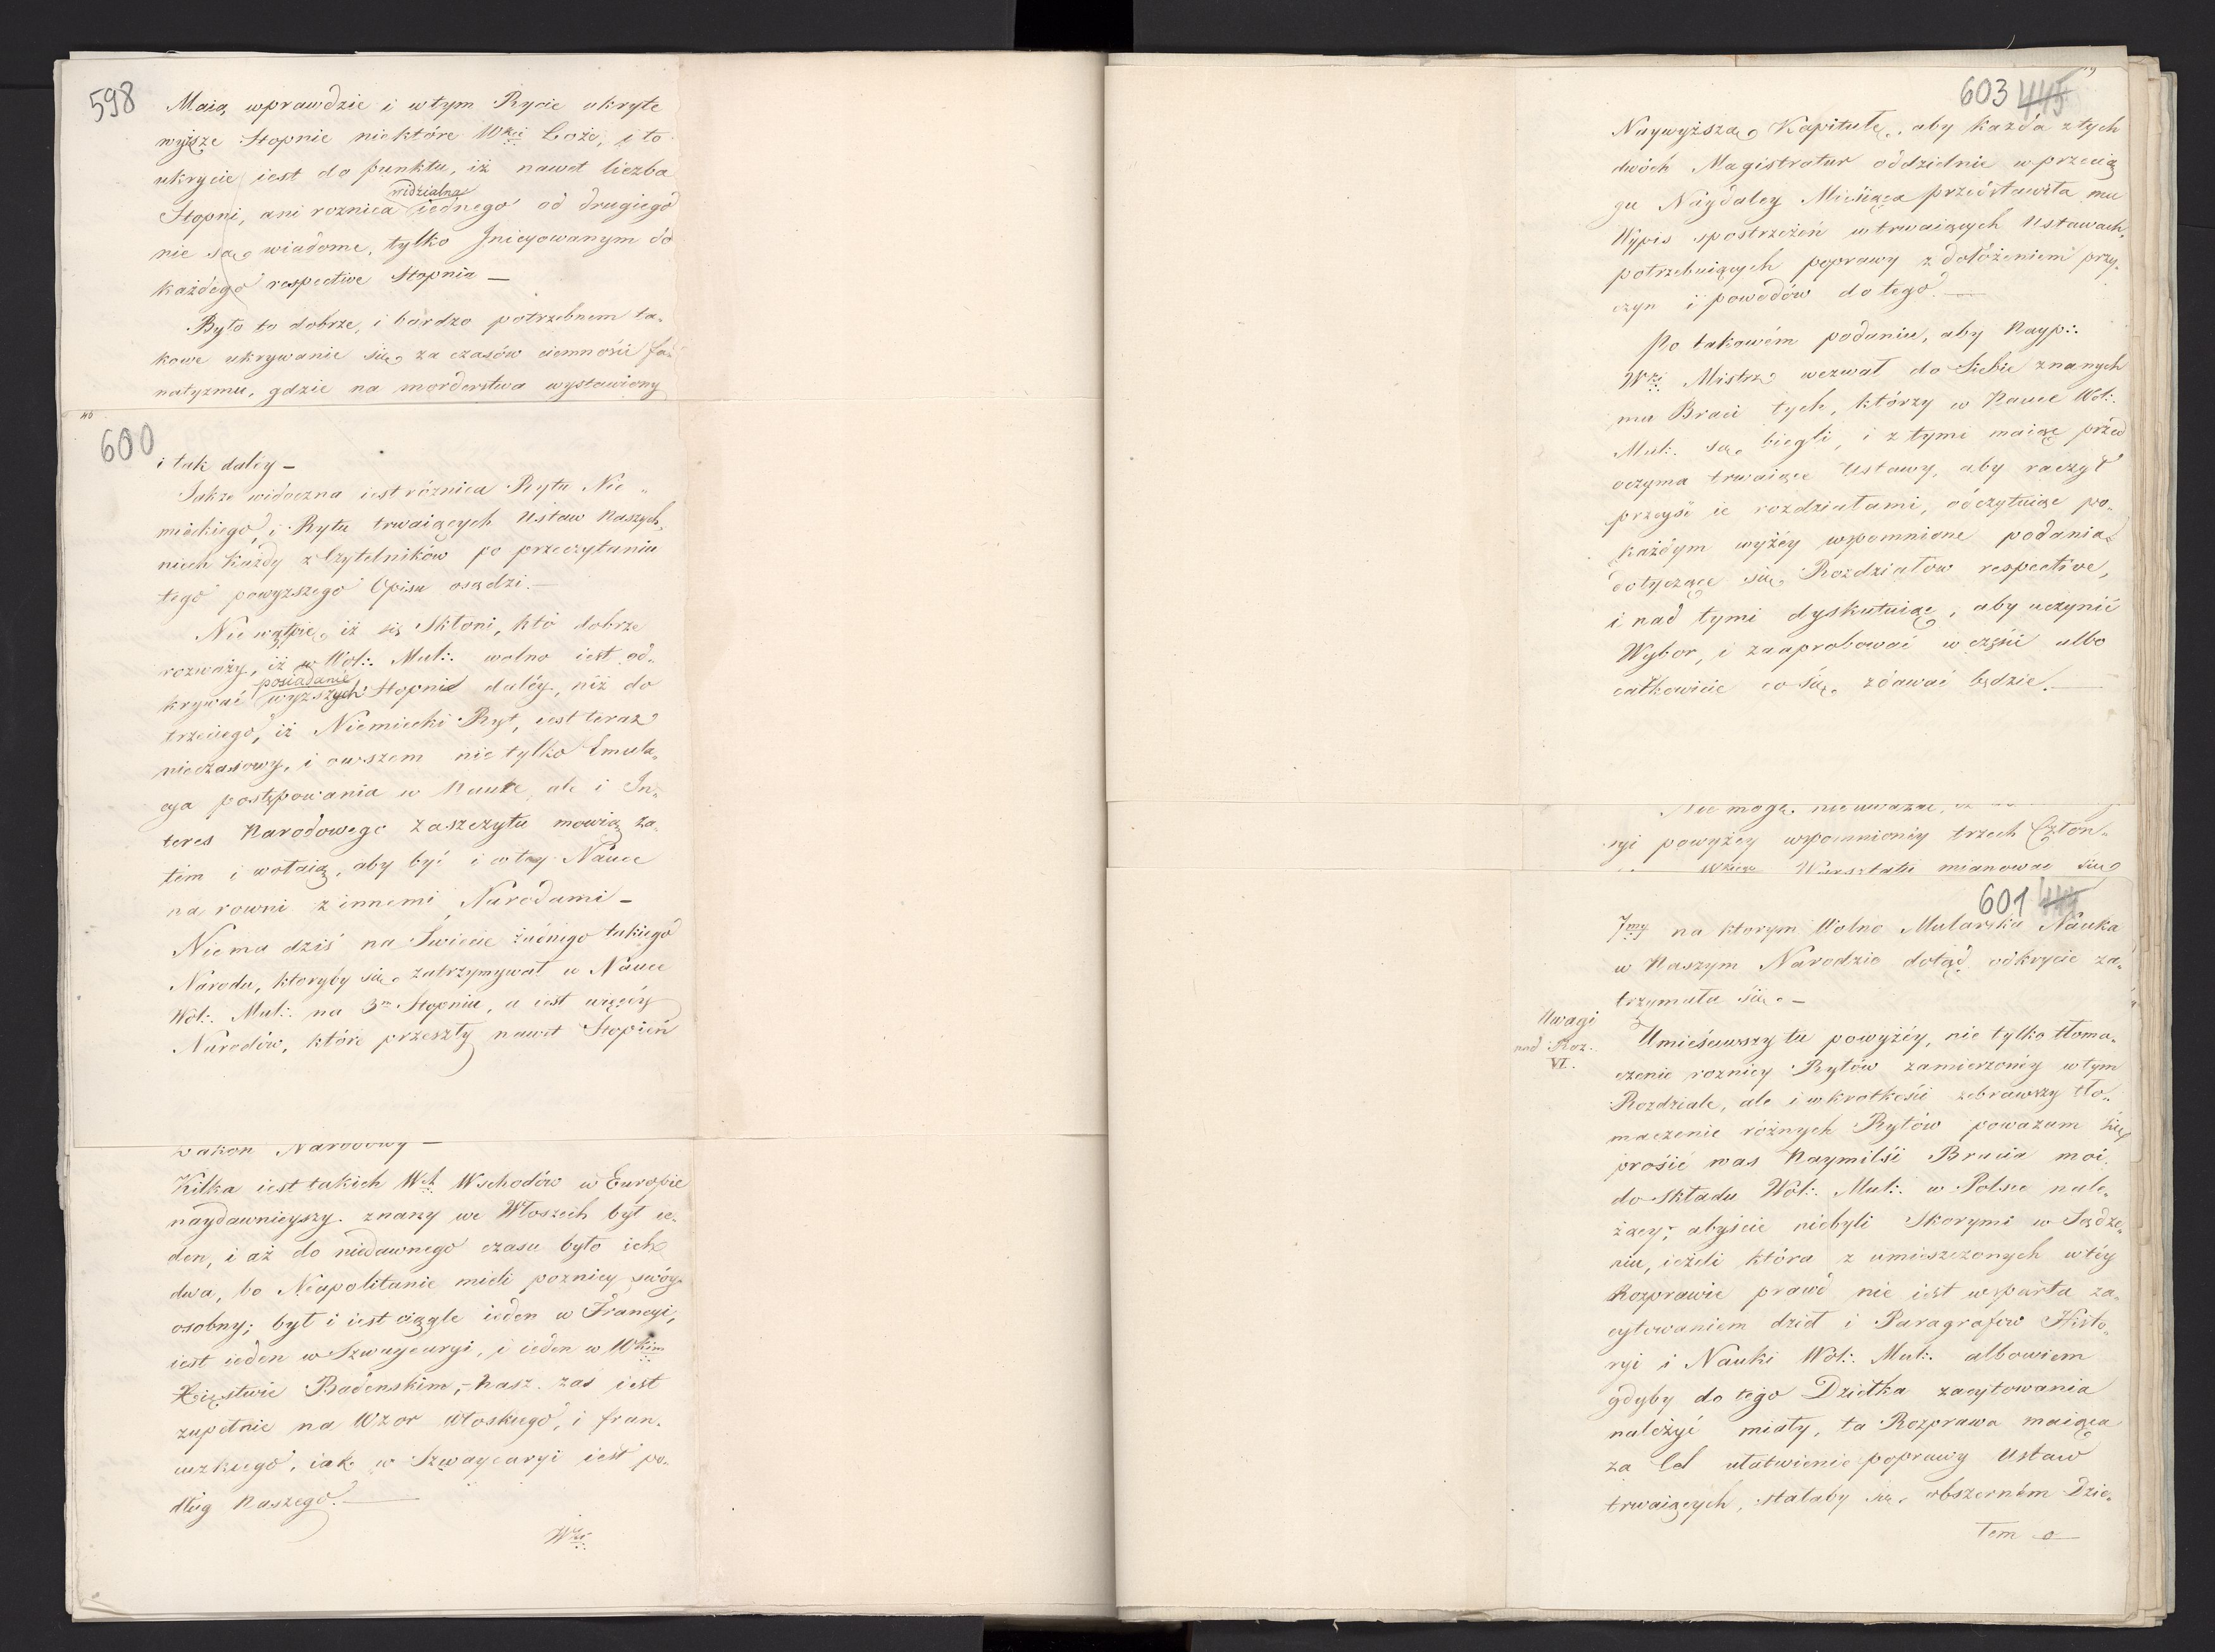 598
Maią wprawdzie i w tym Rycie ukryte
wyższe Stopnie niektóre Wkie Loże, i to
ukrycie iest do punktu, iż nawet liczba
Stopni, ani roznica widzialna iednego od drugiego
nie są wiadome, tylko Inicyowanym do
każdego respective Stopnia —
Było to dobrze, i bardzo potrzebnem ta-
kowe ukrywanie się za czasów ciemności fa-
natyzmu, gdzie na morderstwa wystawiony
600
i tak daléy —
Jakże widoczna iest różnica Rytu Nie-
mieckiego, i Rytu trwaiących Ustaw Naszych,
niech każdy z Czytelników po przeczytaniu
tego powyższego Opisu osądzi. —
Nie wątpię iż się Skłoni, kto dobrze
rozważy, iż w Wol:. Mul:. wolno iest od-
krywać posiadanie wyższych Stopni daléy, niż do
trzeciego, iż Niemiecki Ryt, iest teraz
nieczasowy, i owszem nie tylko Emula-
cya postępowania w Nauce ale i In-
teres Narodowego zaszczytu mowią za
tém i wołaią, aby być i w tey Nauce
na rowni z innemi Narodami —
Nie ma dziś na Świecie żadnego takiego
Narodu, ktoryby się zatrzymywał w Nauce
Wol:. Mul:. na 3m Stopniu, a iest więcéy
Narodów, które przeszły nawet Stopień
zakon Narodowy —
Kilka iest takich Wch Wschodów w Europie
naydawnieyszy znany we Włoszech był ie-
den, i aż do niedawnego czasu było ich
dwa, bo Neapolitanie mieli poznicy swóy
osobny; był i iest ciągle ieden w Francyi,
iest ieden w Szwaycaryi, i ieden w Wkim
Xięstwie Badenskim, – nasz zaś iest
zupełnie na Wzor włoskiego, i fran-
cuzkiego, iak w Szwaycaryi iest po-
dług Naszego. —
Wki
603 445
Naywyższą Kapitułę, aby każda z tych
dwóch Magistratur oddzielnie w przecią
gu Naydaley Miesiąca przedstawiła mu
Wypis spostrzeżeń w trwaiących Ustawach,
potrzebuiących poprawy z dołożeniem przy-
czyn i powodów do tego. —
Po takowém podaniu, aby Nayp:.
Wki Mistrz wezwał do Siebie znanych
mu Braci tych, którzy w Nauce Wol:.
Mul:. są biegli, i z tymi maiąc przed
oczyma trwaiące Ustawy, aby raczył
przeyść ie rozdziałami, odczytuiąc po
każdym wyżéy wspomnione podania
dotyczące się Rozdziałow respective,
i nad tymi dyskutuiąc, aby uczynić
Wybor, i zaaprobować w części albo
całkowicie co się zdawać będzie. —
Nie mogę nie uważać,
syi powyżey wspomnionéy trzech Człon-
Warsztatu mianować się
601
7my na ktorym Wolno Mularska Nauka
w Naszym Narodzie dotąd odkrycie za-
trzymała się. —
Uwagi
nad Roz.
VI.
Umieściwszy tu powyżéy, nie tylko tłoma-
czenie roznicy Rytów zamierzonéy w tym
Rozdziale, ale i w krotkości zebrawszy tło-
maczenie różnych Rytów poważam się
prosić was Naymilsi Bracia moi
do Składu Wol:. Mul:. w Polsce nale-
żący, abyście niebyli Skorymi w Sądze-
niu, ieżeli która z umieszczonych w téy
Rozprawie prawd nie iest wsparta za-
cytowaniem dzieł i Paragrafow Histo-
ryi i Nauki Wol:. Mul:. albowiem
gdyby do tego Dziełka zacytowania
należyć miały, ta Rozprawa maiąca
za Cel ułatwienie poprawy Ustaw
trwaiących, stałaby się obszerném Dzie-
łem